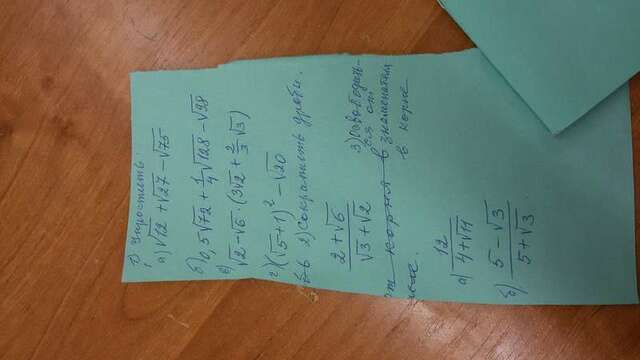 1) Упростить
а) √12 + √27 - √75
б) 0,5√72 + 1/4 √128 - √98
в) √2 - √6 · (3√2 + 2/3 √3)
г) (√5 + 1)² - √20
2) Сократить дроби.
2 + √6 / √3 + √2
3) Освободить-
ся от
корня в знаменателе
в корне
а) 12 / 4 + √11
б) 5 - √3 / 5 + √3